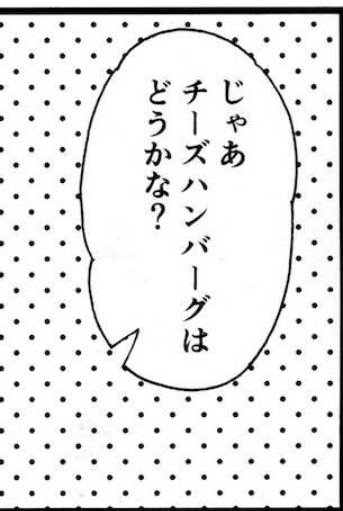 じゃあ
チーズハンバーグは
どうかな？